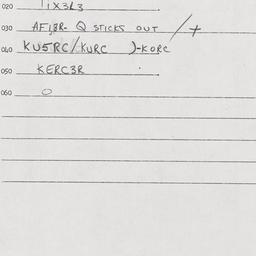 020 TIX3L3
030 AFIBR- Q STICKS OUT /+
040 KU5RC/KURC )-KORC
050 KERC3R
060 O